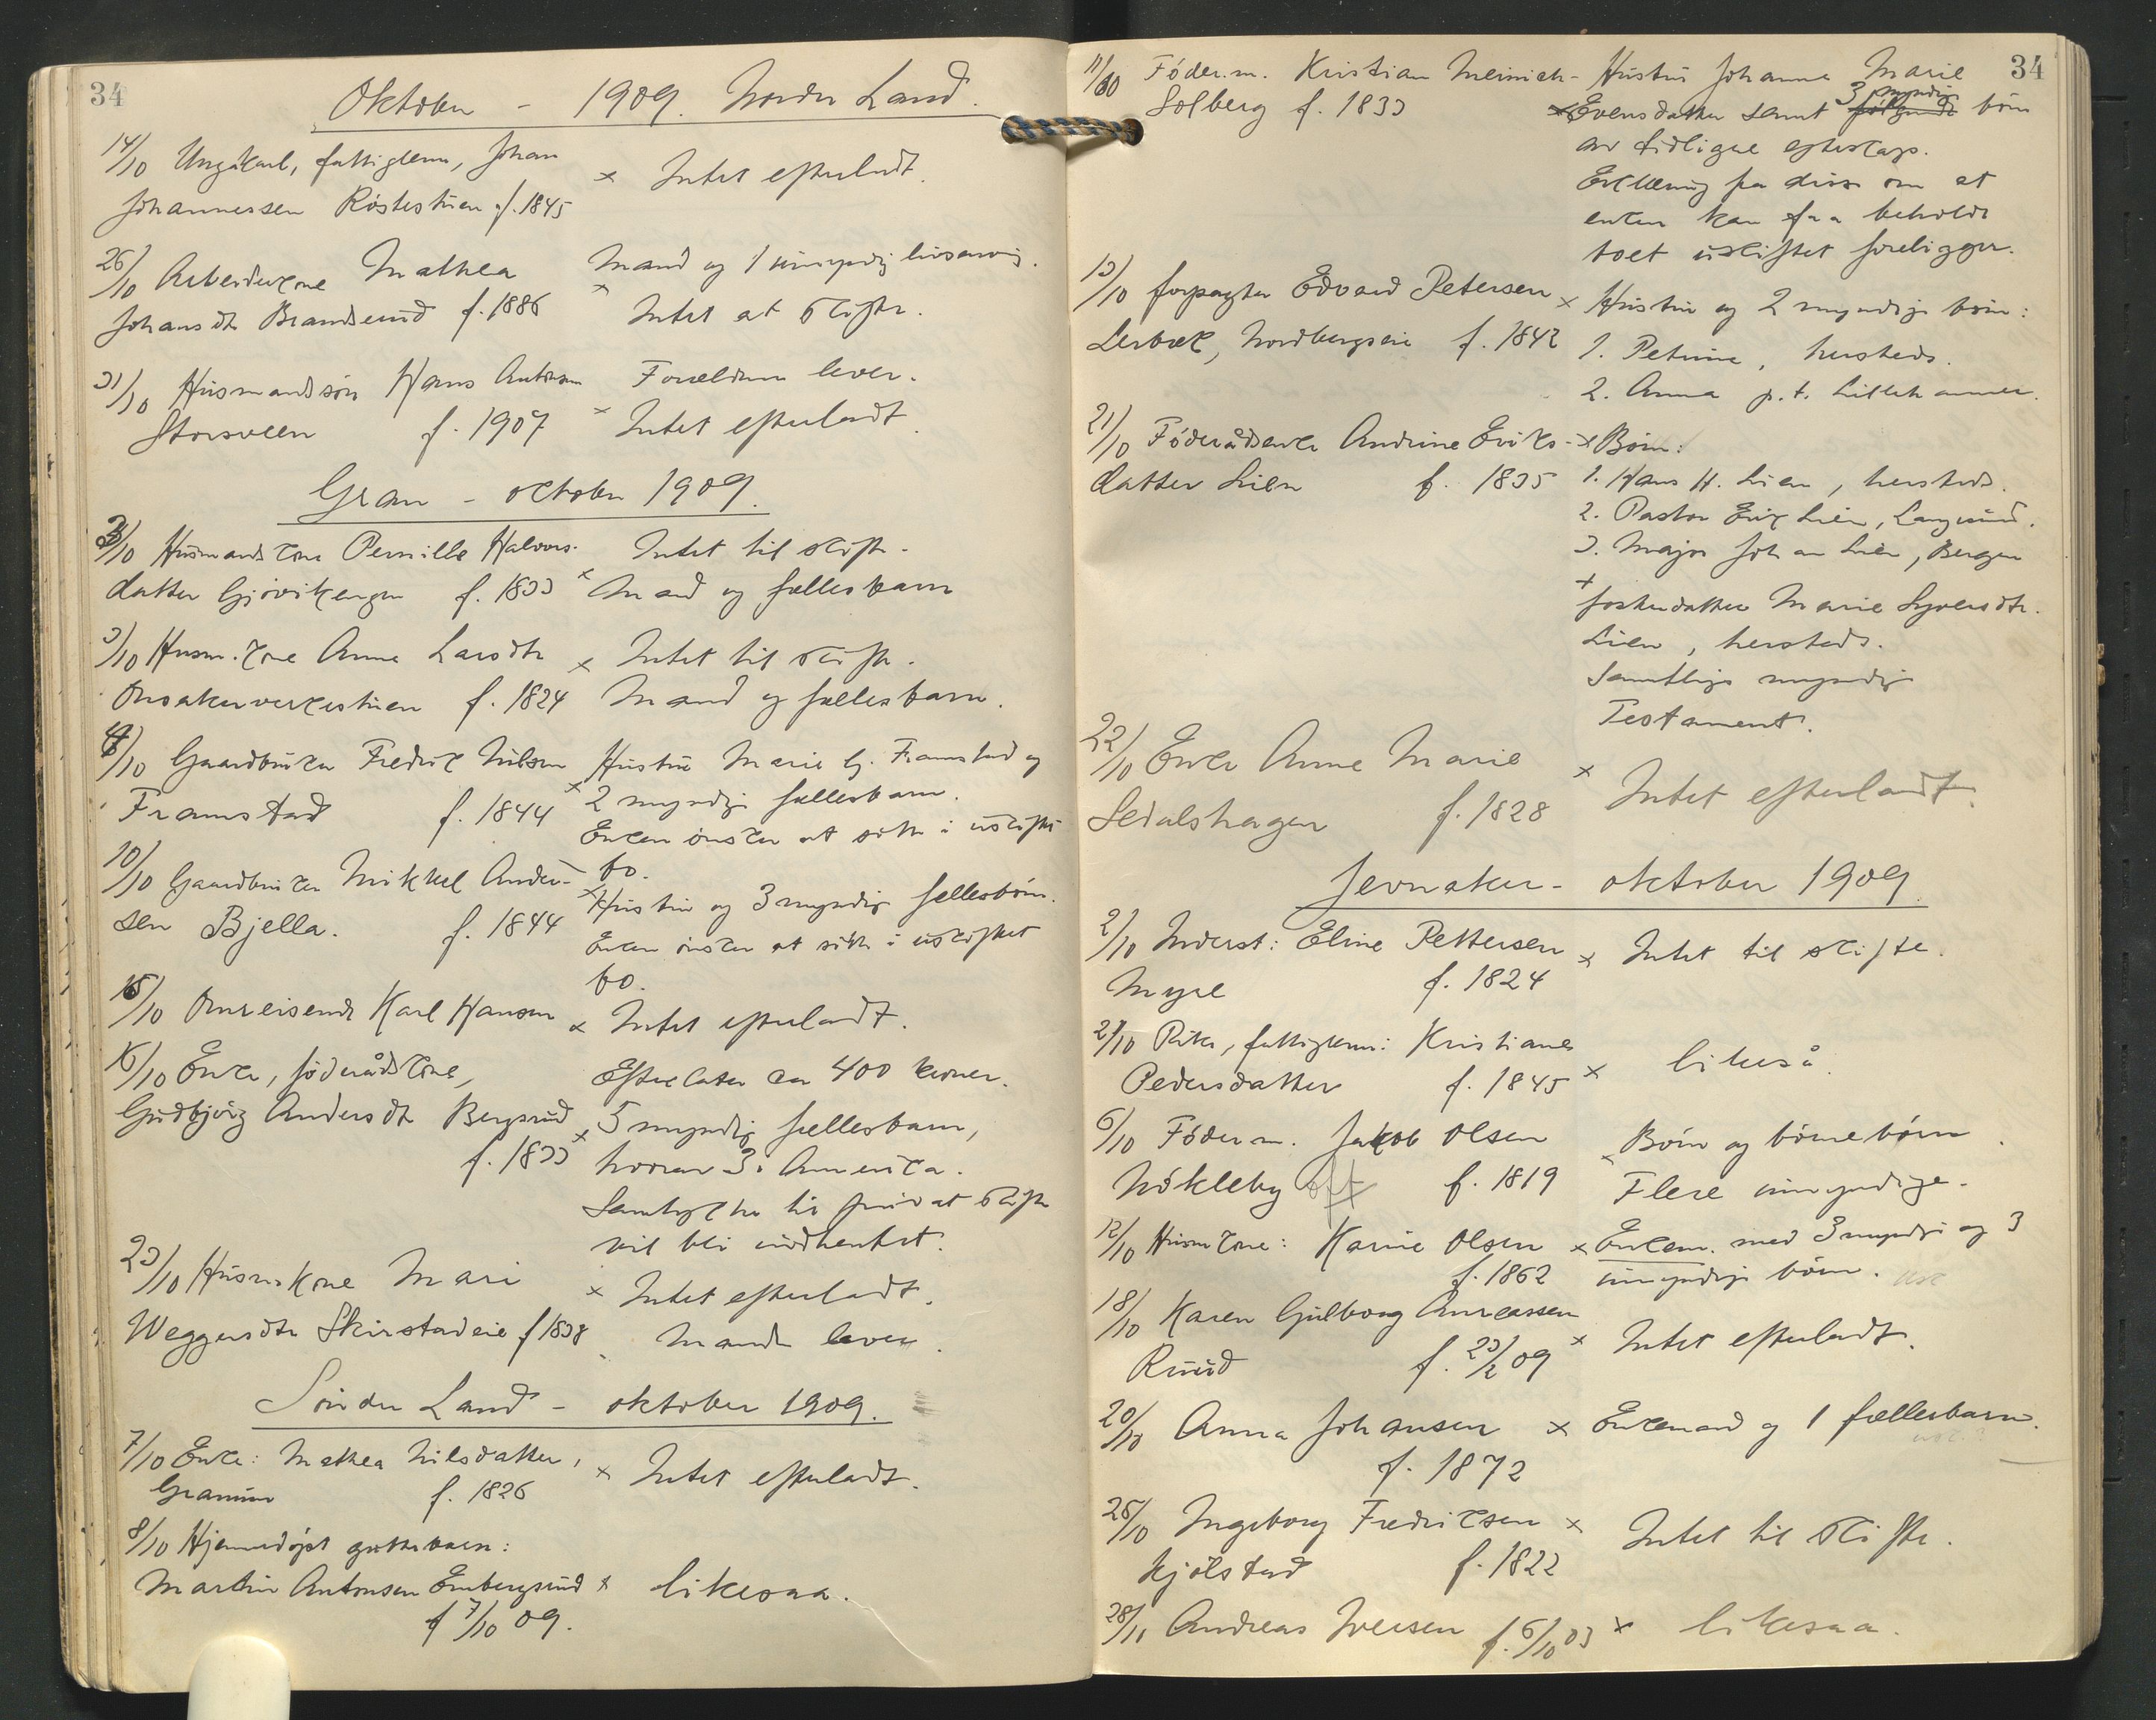 34
Oktober - 1909. Nordre Land.
14/10 Ungkarl, fattiglem, Johan x Intet efterladt.
Johannessen Røstestuen f. 1845
26/10 Arbeiderkone Mathea Mand og 1 umyndig livsarving.
Johansdtr Brandserud f. 1886 x Intet at skifte.
31/10 Husmandssøn Hans Antonsen Forældrene lever.
Storsveen f. 1907 x Intet efterladt.
Gran - oktober 1909.
3/10 Husmandskone Pernille Halvors- Intet til skifte.
datter Gjøvikengen f. 1833 x Mand og fællesbarn
3/10 Husm.kone Anne Larsdtr x Intet til skifte.
Onsakerverkestuen f. 1824 Mand og fællesbarn.
4/10 Gaardbruker Fredrik Nilsen Hustru Marie G. Framstad og
Framstad f. 1844 x 2 myndige fællesbarn.
Enken ønsker at sitte i uskiftet
bo.
10/10 Gaardbruker Mikkel Ander- x Hustru og 3 myndige fællesbørn.
sen Bjella. f. 1844 Enken ønsker at sitte i uskiftet
bo.
15/10 Omreisende Karl Hansen x Intet efterladt.
16/10 Enke, føderådskone, Efterlater ca 400 kroner.
Gudbjørg Andersdtr Bergsrud x 5 myndige fællesbarn,
f. 1833 hvorav 3 i Amerika.
Samtykke til privat skifte
vil bli indhentet.
23/10 Husm.kone Mari x Intet efterladt.
Weggersdtr Skirstadeie f 1838 Manden lever.
Søndre Land - oktober 1909.
7/10 Enke: Mathea Nilsdatter, x Intet efterladt.
Granum f. 1826
8/10 Hjemmedøpt guttebarn:
Martin Antonsen Embergsrud x likesaa.
f 7/10 09.
34
11/10 Føder.m. Kristian Meinich- Hustru Johanne Marie
Solberg f. 1833 x Evensdatter samt 3 myndige følgende børn
av tidligere egteskap.
Erklæring fra disse om at
enken kan faa beholde
boet uskiftet foreligger.
13/10 forpagter Edvard Petersen x Hustru og 2 myndige børn:
Lerbæk, Nordbergseie f. 1842 1. Petrine, hersteds.
2. Anna p.t. Lillehammer.
21/10 Føderådsenke Andrine Eriks- x Børn:
datter Lien f. 1835 1. Hans H. Lien, hersteds.
2. Pastor Erik Lien, Langesund.
3. Major Johan Lien, Bergen
+
fosterdatter Marie Syversdtr.
Lien, hersteds.
Samtlige myndige
Testament.
22/10 Enke Anne Marie x Intet efterladt.
Sedalshagen f. 1828
Jevnaker - oktober 1909.
2/10 Inderst: Eline Pettersen x Intet til skifte.
Myre f. 1824
27/10 Pike, fattiglem: Kristiane x likeså.
Pedersdatter f. 1845
6/10 Føder.m. Jakob Olsen x Børn og børnebørn.
Nøkleby f. 1819 Flere umyndige.
12/10 Husm.kone: Karine Olsen x Enkem. med 3 myndige og 3
f. 1862 umyndige børn. usk
18/10 Karen Gulborg Andreassen x Intet efterladt.
Ruud f. 23/2 09
20/10 Anna Johansen x Enkemand og 1 fællesbarn.
f. 1872
26/10 Ingeborg Fredriksen x Intet til skifte.
Kjølstad f. 1822
28/10 Andreas Iversen f. 6/10 03 x likesaa.